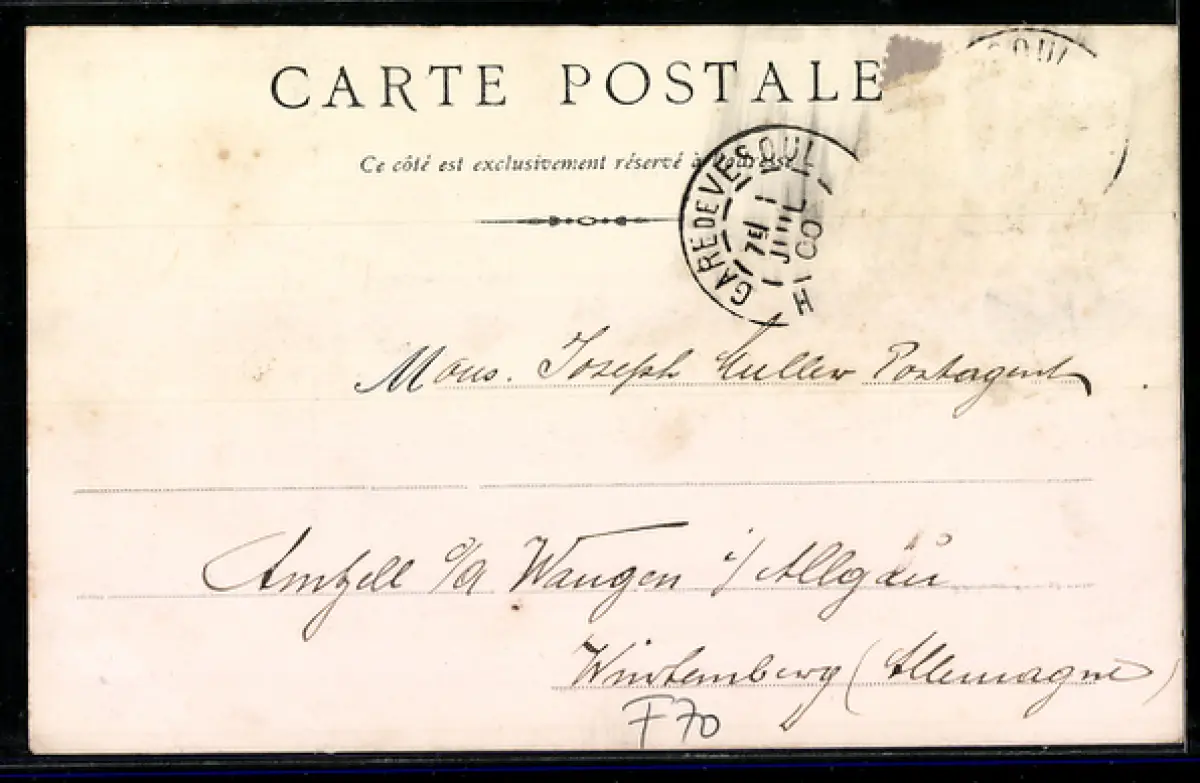 CARTE POSTALE
Ce côté est exclusivement réservé à
GARE DE VESOUL
H
7E
1
JUIL
00
OUL
Mons. Joseph Muller Postagent
Amtzell o/a Wangen i/ Allgäu
Wurtemberg (Allemagne)
F70